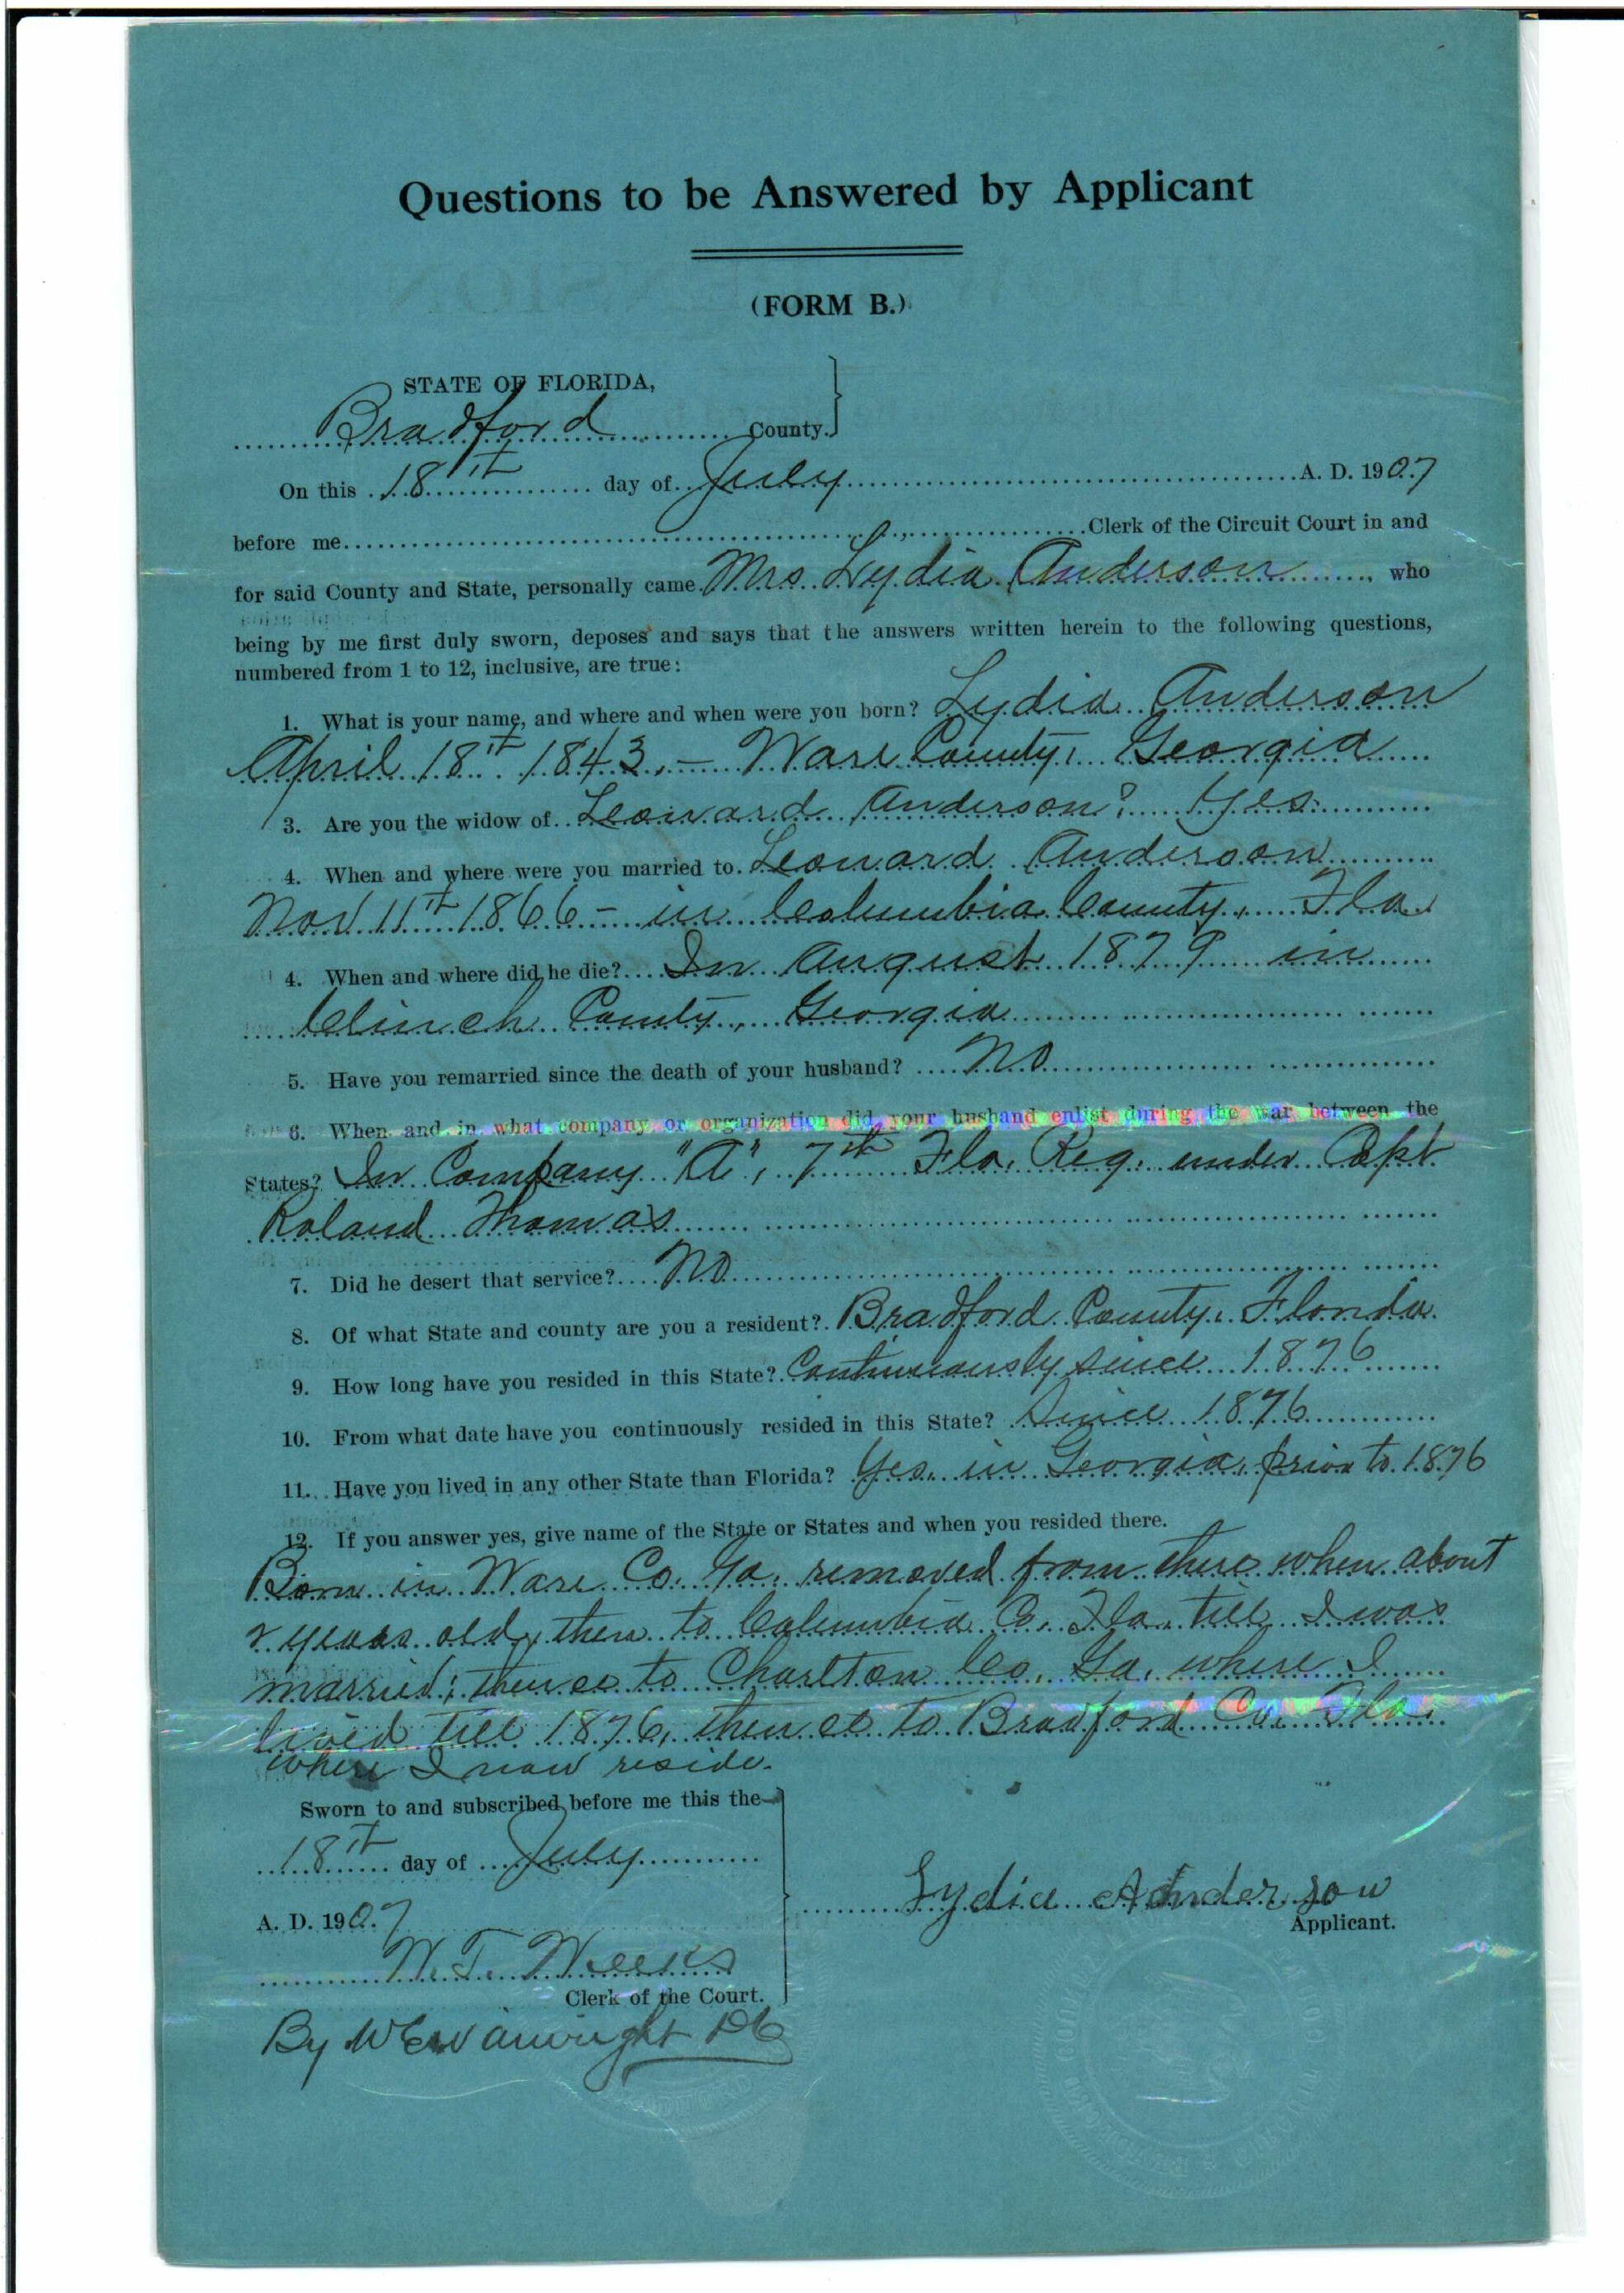 Questions to be Answered by Applicant
(FORM B.)
STATE OF FLORIDA,
Bradford County.
On this 18th day of July A. D. 1907
before me Clerk of the Circuit Court in and
for said County and State, personally came Mrs. Lydia Anderson, who
being by me first duly sworn, deposes and says that the answers written herein to the following questions,
numbered from 1 to 12, inclusive, are true:
1. What is your name, and where and when were you born? Lydia Anderson
April 18th 1843, – Ware County, Georgia
3. Are you the widow of Leonard Anderson? Yes
4. When and where were you married to Leonard Anderson
Nov 11th 1866 – in Columbia County, Fla.
4. When and where did he die? In August 1879 in
Clinch County, Georgia
5. Have you remarried since the death of your husband? No
6. When and in what company or organization did your husband enlist during the war between the
States? In Company "A", 7th Fla. Reg. under Capt
Roland Thomas
7. Did he desert that service? No
8. Of what State and county are you a resident? Bradford County, Florida
9. How long have you resided in this State? Continuously since 1876
10. From what date have you continuously resided in this State? Since 1876
11. Have you lived in any other State than Florida? Yes, in Georgia, prior to 1876
12. If you answer yes, give name of the State or States and when you resided there.
Born in Ware Co. Ga. removed from there when about
2 years old, then to Columbia Co. Fla. till I was
married; thence to Charlton Co. Ga. where I
lived till 1876, thence to Bradford Co. Fla.
where I now reside.
Sworn to and subscribed before me this the
18th day of July
A. D. 1907
Lydia Anderson
Applicant.
W. T. Weeks
Clerk of the Court.
By W E Wainwright DC